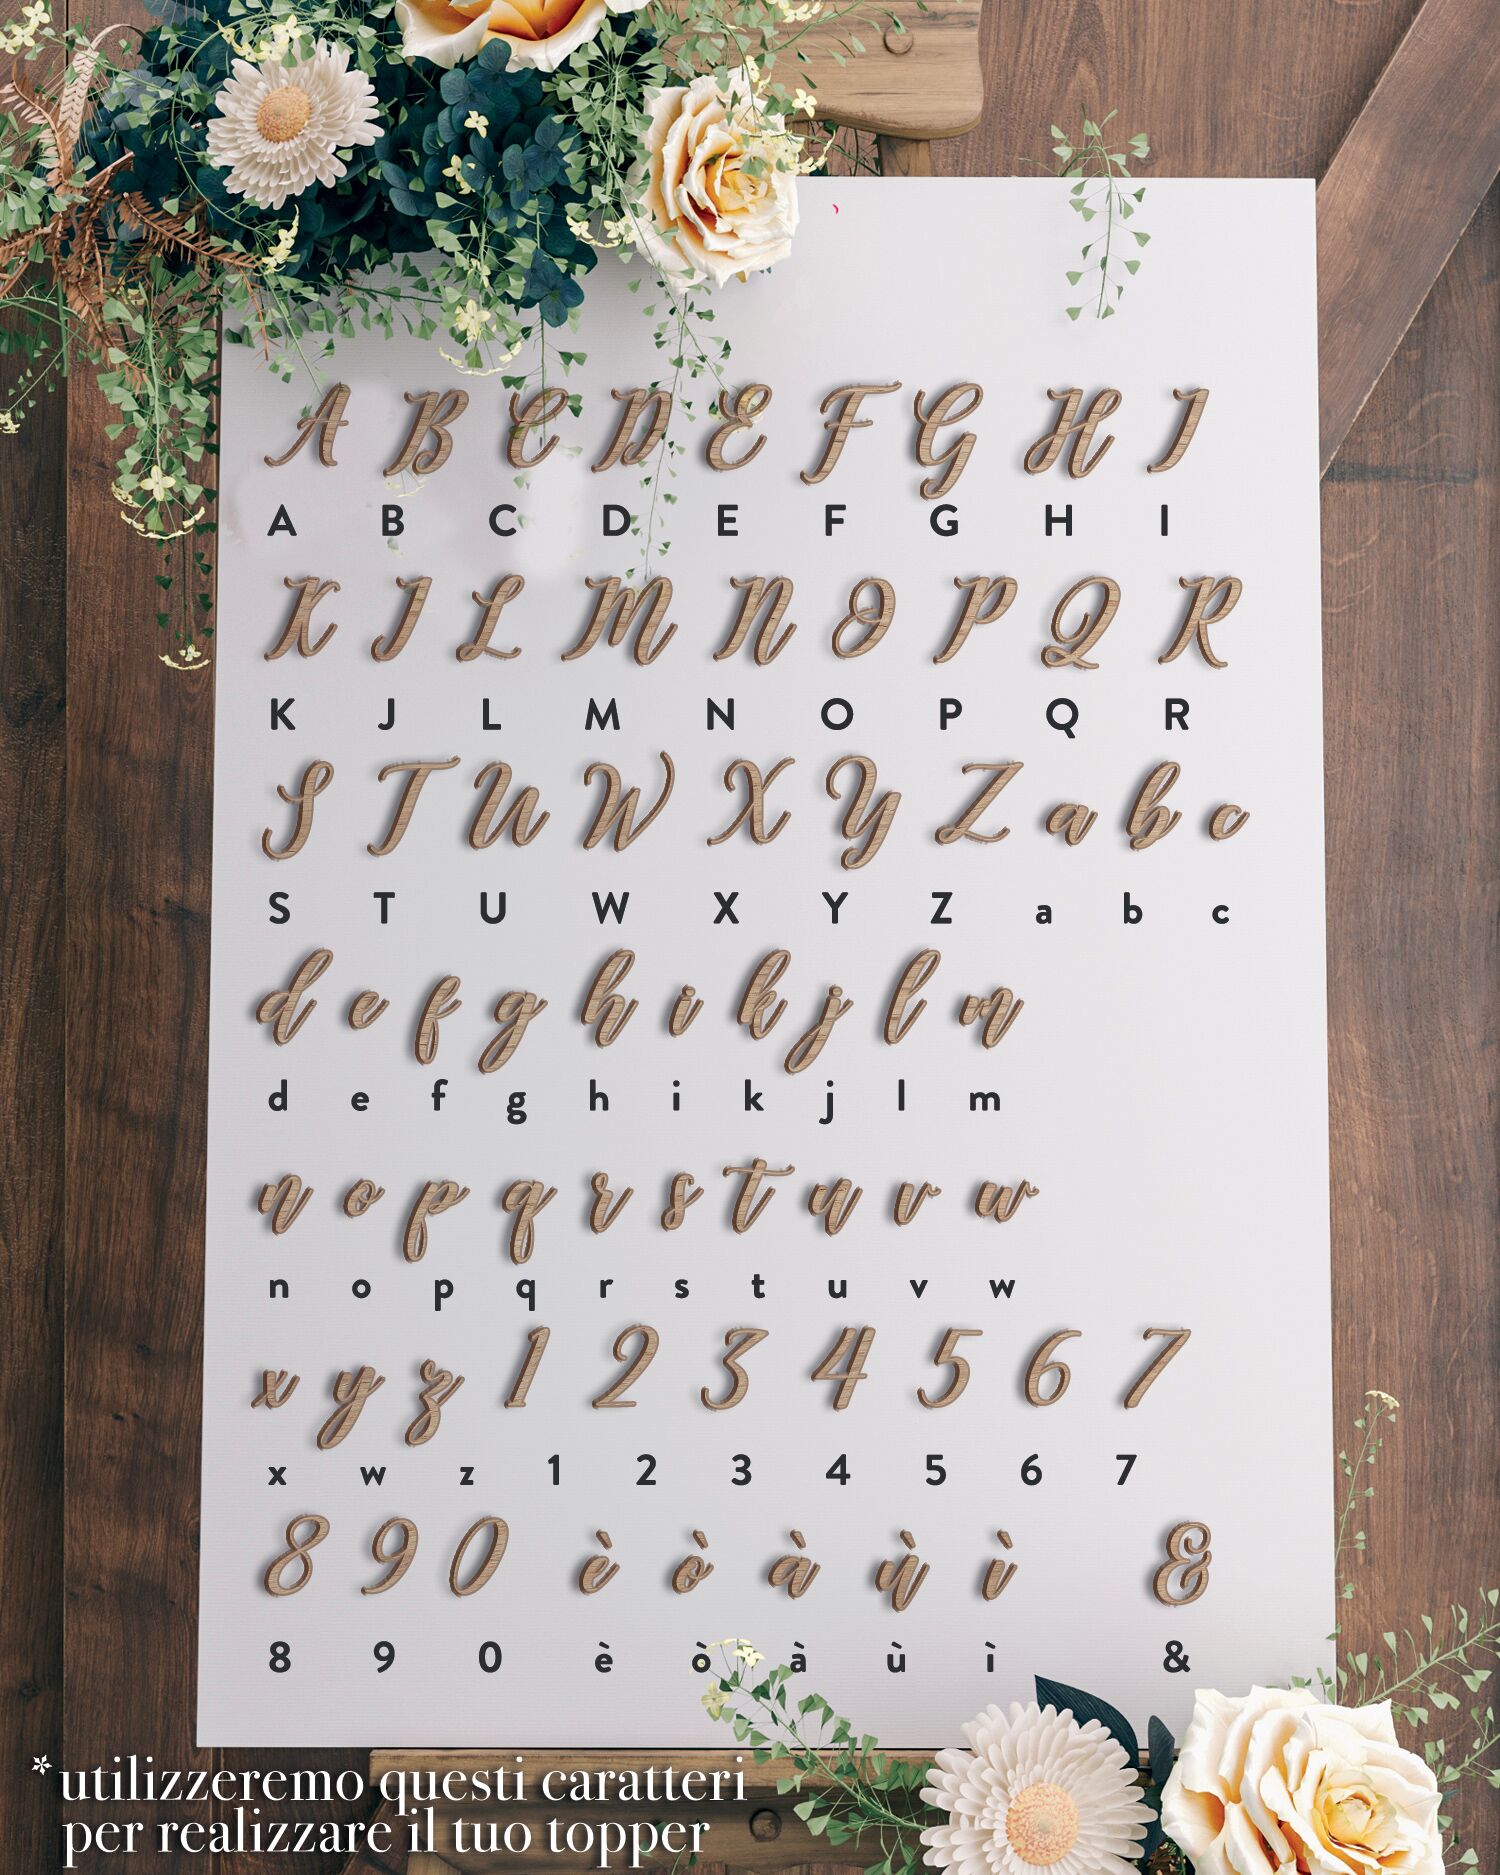 A B C D E F G H I
A B C D E F G H I
K J L M N O P Q R
K J L M N O P Q R
S T U W X Y Z a b c
S T U W X Y Z a b c
d e f g h i k j l m
d e f g h i k j l m
n o p q r s t u v w
n o p q r s t u v w
x y z 1 2 3 4 5 6 7
x w z 1 2 3 4 5 6 7
8 9 0 è ò à ù ì &
8 9 0 è ò à ù ì &
* utilizzeremo questi caratteri
per realizzare il tuo topper